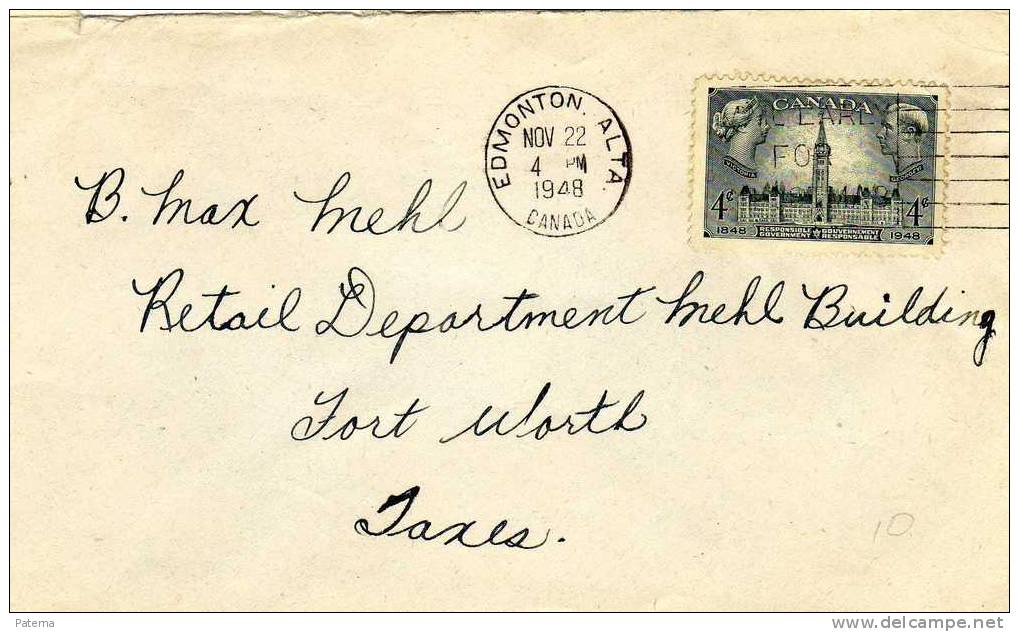 EDMONTON, ALTA.
NOV 22
4 PM
1948
CANADA
CANADA
FOR
VICTORIA
4¢ 4¢
1848 RESPONSIBLE GOUVERNEMENT 1948
GOVERNMENT RESPONSABLE
B. Max Mehl
Retail Department Mehl Building
Fort Worth
Taxes.
10
Paterna
www.delcampe.net